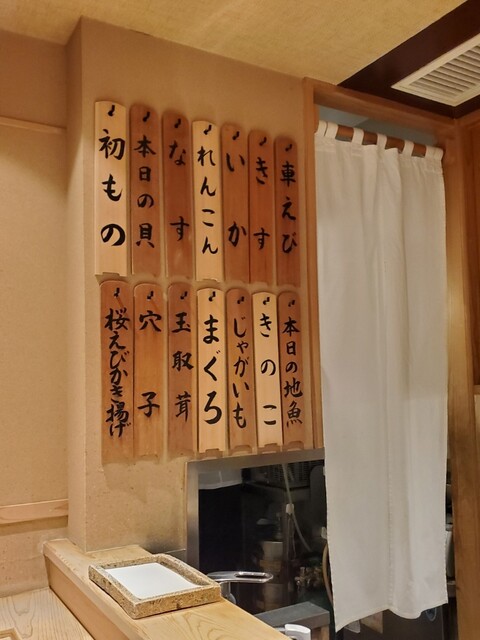 車えび
きす
いか
れんこん
なす
本日の貝
初もの
本日の地魚
きのこ
じゃがいも
まぐろ
玉取茸
穴子
桜えびかき揚げ